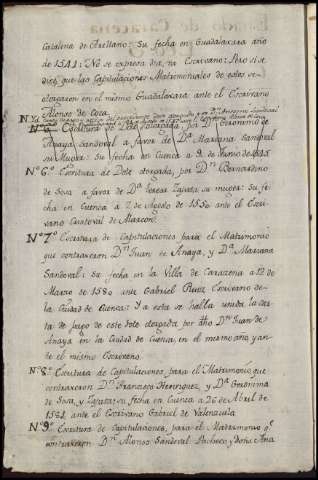 Catalina de Arellano: Su fecha en Guadalaxara año
de 1541: No se expresa dia, ni Escrivano: Pero si se
dice que las Capitulaciones Matrimoniales de estos se
otorgaron en el mismo Guadalaxara ante el Escrivano
Alonso de Coca.
Nº 5º Escritura de Dote otorgada, por Dⁿ Geronimo de
Anaya Sandoval a favor de Dª Mariana Sandoval
su Muger: Su fecha en Cuenca a 9 de Junio de
Nº 6º Escritura de Dote otorgada, por Dⁿ Bernardino
de Sosa a favor de Dª Teresa Zapata su muger: Su fe-
cha en Cuenca a 2 de Agosto de 1550 ante el Escri-
vano Christoval de Alarcon
Nº 7º Escritura de Capitulaciones para el Matrimonio
que contraxeron Dⁿ Juan de Anaya, y Dª Mariana
Sandoval: su fecha en la Villa de Caracena a 12 de
Marzo de 1580 ante Gabriel Ruiz Escrivano de
la Ciudad de Cuenca: Y a esta se halla unida la Car-
ta de pago de este dote otorgada por dho Dⁿ Juan de
Anaya en la Ciudad de Cuenca, en el mismo año y an-
te el mismo Escrivano
Nº 8º Escritura de Capitulaciones, para el Matrimonio, que
contraxeron Dⁿ Francisco Henriquez, y Dª Geronima
de Sosa, y Zapata: su fecha en Cuenca a 26 de Abril de
1581 ante el Escrivano Gabriel de Valenzuela
Nº 9º Escritura de Capitulaciones, para el Matrimonio qᵉ
contraxeron Dⁿ Alonso Sandoval Pacheco y Doña Ana